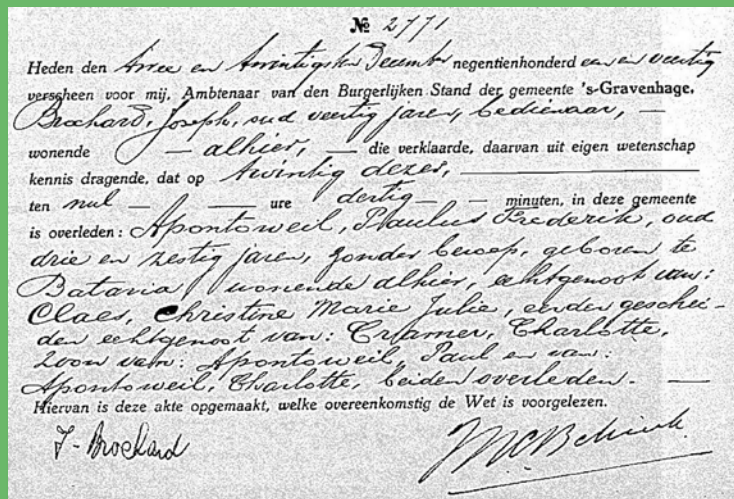 № 2771
Heden den twee en twintigsten December negentienhonderd een en veertig
verscheen voor mij, Ambtenaar van den Burgerlijken Stand der gemeente 's-Gravenhage,
Brochard, Joseph, oud veertig jaren, bedienaar, —
wonende — alhier, — die verklaarde, daarvan uit eigen wetenschap
kennis dragende, dat op twintig dezer, —
ten nul — ure dertig — minuten, in deze gemeente
is overleden: Apontoweil, Paulus Frederik, oud
drie en zestig jaren, zonder beroep, geboren te
Batavia, wonende alhier, echtgenoot van:
Claes, Christine Marie Julie, eerder geschei-
den echtgenoot van: Cramer, Charlotte,
zoon van: Apontoweil, Paul en van:
Apontoweil, Charlotte, beiden overleden. —
Hiervan is deze akte opgemaakt, welke overeenkomstig de Wet is voorgelezen.
J. Brochard